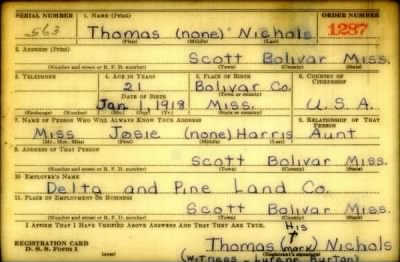 SERIAL NUMBER 1. NAME (Print) ORDER NUMBER
563 Thomas (none) Nichols 1287
(First) (Middle) (Last)
2. ADDRESS (Print)
Scott Bolivar Miss.
(Number and street or R. F. D. number) (Town) (County) (State)
3. TELEPHONE 4. AGE IN YEARS 5. PLACE OF BIRTH 6. COUNTRY OF CITIZENSHIP
21 Bolivar Co.
DATE OF BIRTH (Town or county)
Jan 1, 1918 Miss. U.S.A.
(Exchange) (Number) (Mo.) (Day) (Yr.) (State or country)
7. NAME OF PERSON WHO WILL ALWAYS KNOW YOUR ADDRESS 8. RELATIONSHIP OF THAT PERSON
Miss Josie (none) Harris Aunt
(Mr., Mrs., Miss) (First) (Middle) (Last)
9. ADDRESS OF THAT PERSON
Scott Bolivar Miss.
(Number and street or R. F. D. number) (Town) (County) (State)
10. EMPLOYER'S NAME
Delta and Pine Land Co.
11. PLACE OF EMPLOYMENT OR BUSINESS
Scott Bolivar Miss.
(Number and street or R. F. D. number) (Town) (County) (State)
I AFFIRM THAT I HAVE VERIFIED ABOVE ANSWERS AND THAT THEY ARE TRUE. His
REGISTRATION CARD Thomas (mark) Nichols
D. S. S. Form 1 (Registrant's signature)
(Witness - Burton)